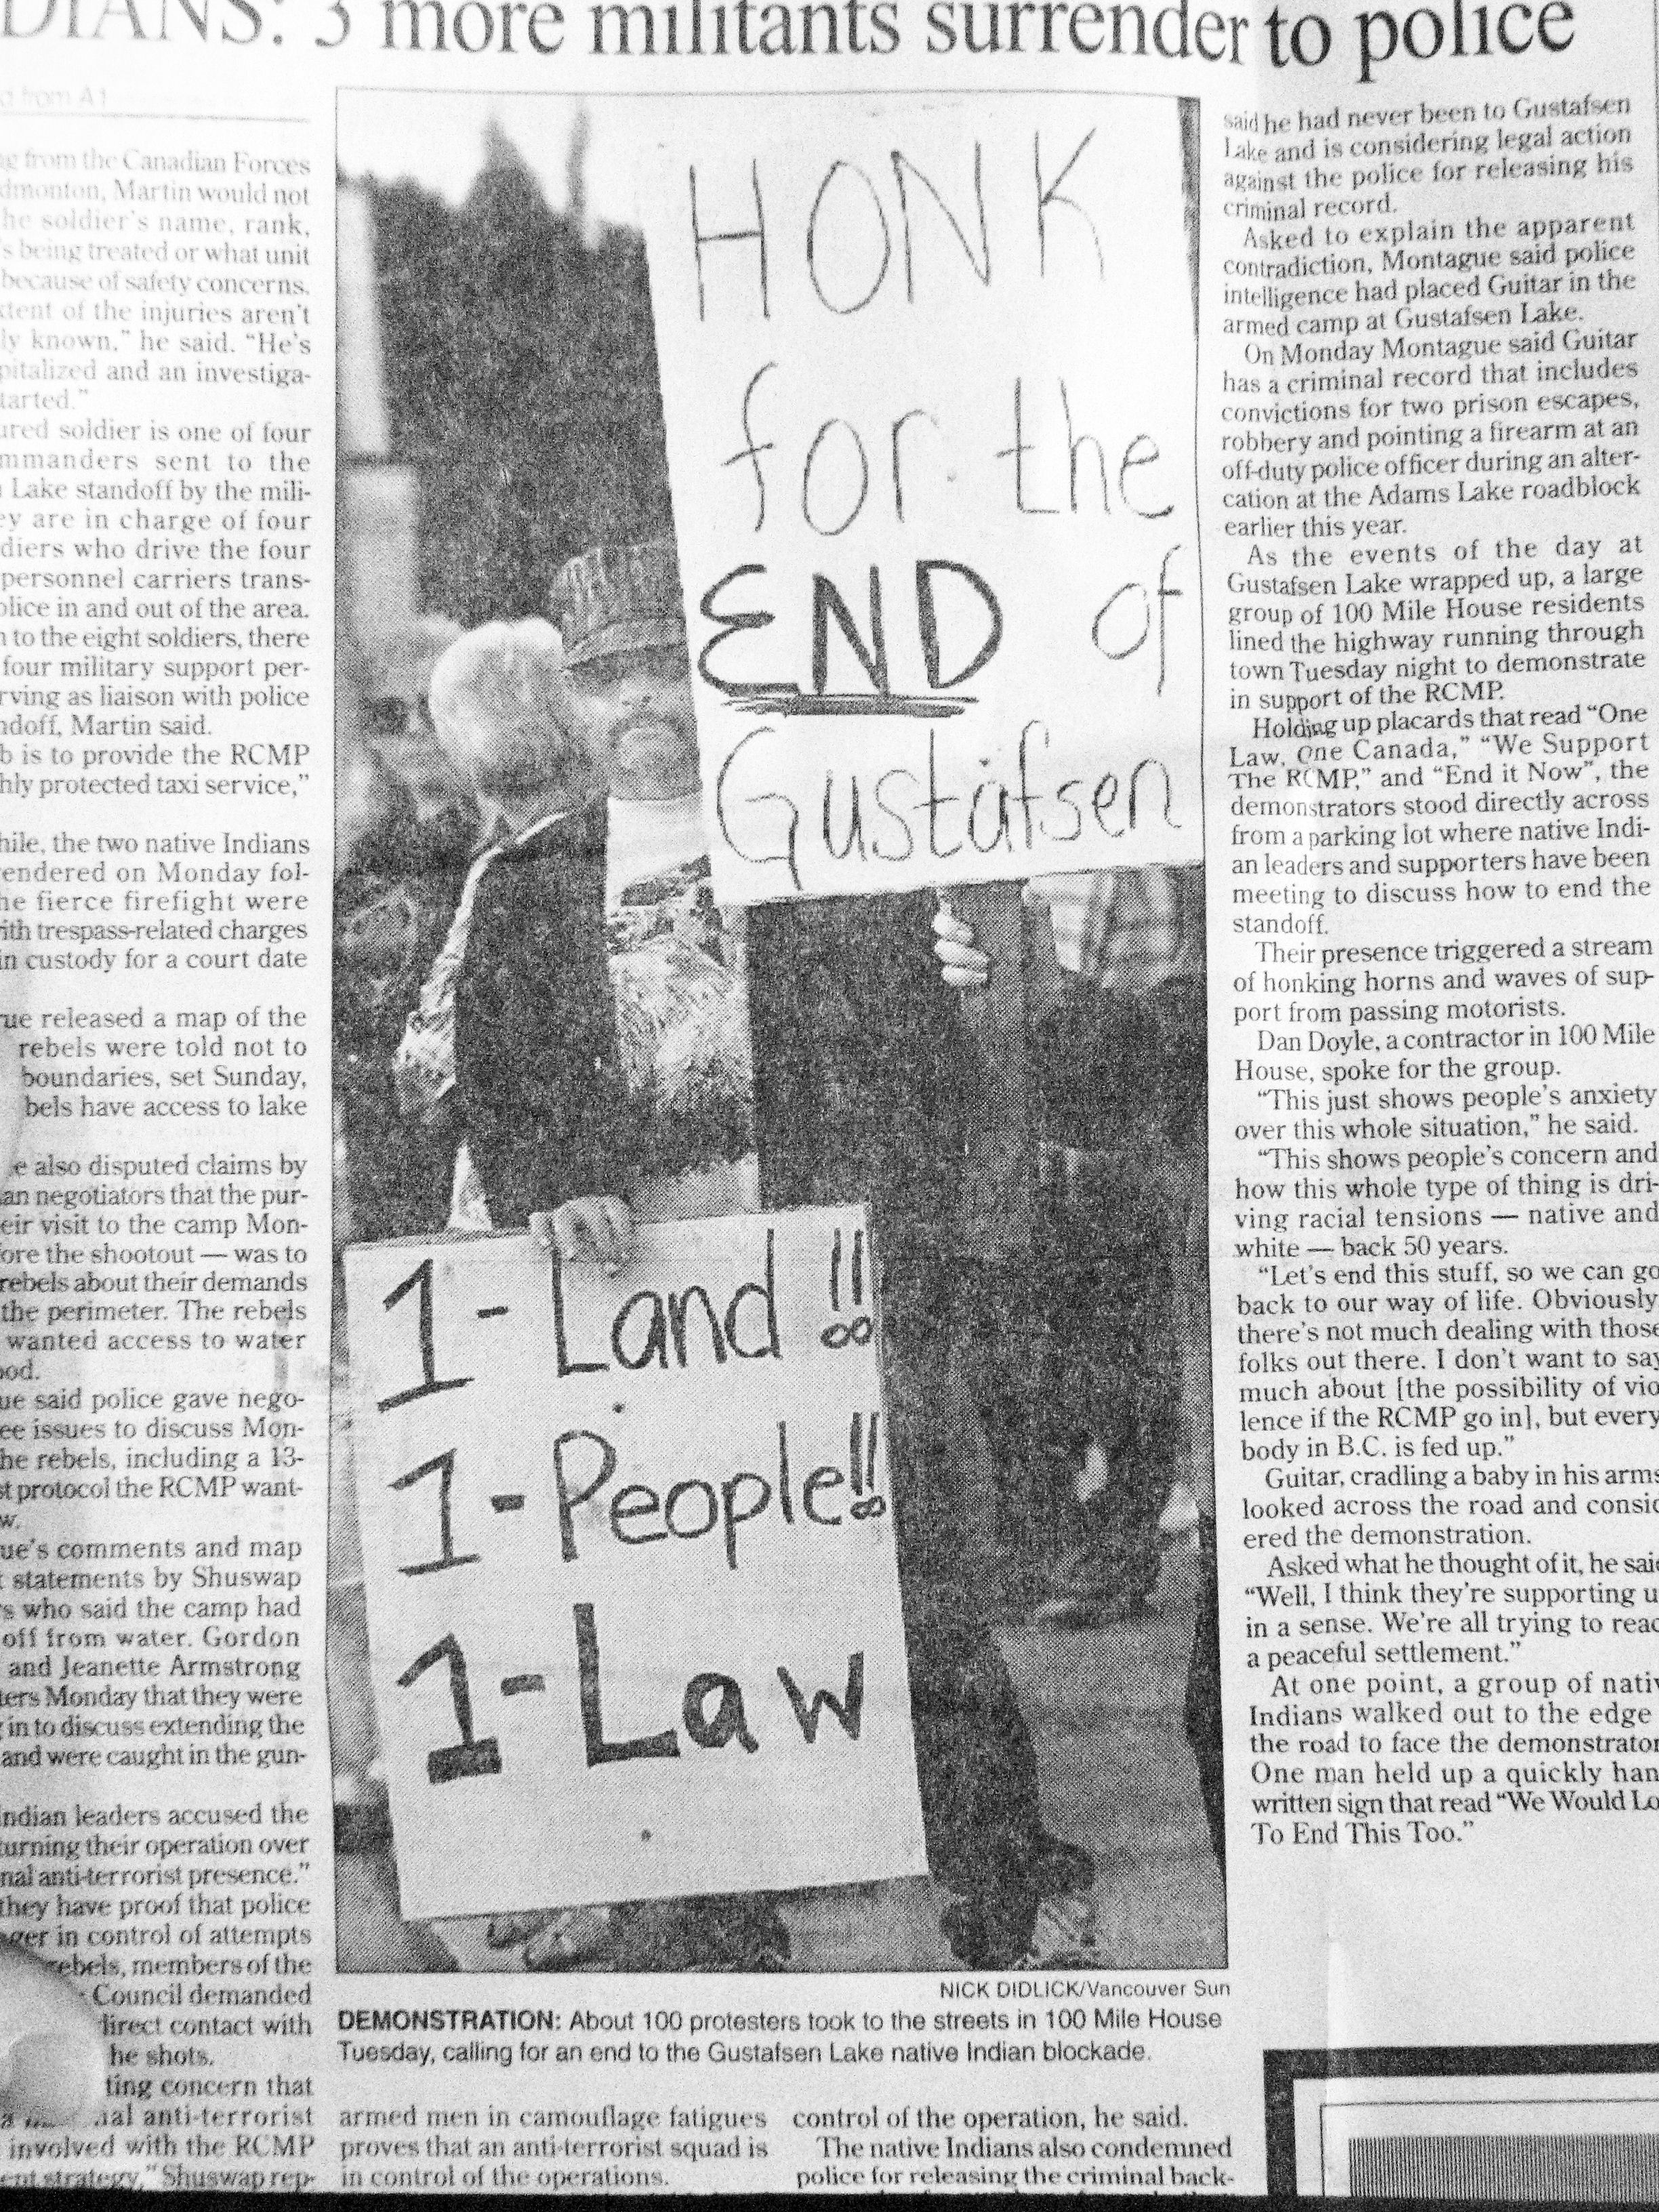 DIANS: 3 more militants surrender to police
d from A1
from the Canadian Forces
dmonton, Martin would not
he soldier's name, rank,
s being treated or what unit
because of safety concerns.
xtent of the injuries aren't
ly known," he said. "He's
pitalized and an investiga-
tarted."
ured soldier is one of four
mmanders sent to the
Lake standoff by the mili-
ey are in charge of four
diers who drive the four
personnel carriers trans-
olice in and out of the area.
n to the eight soldiers, there
four military support per-
rving as liaison with police
ndoff, Martin said.
b is to provide the RCMP
hly protected taxi service,"
hile, the two native Indians
rendered on Monday fol-
he fierce firefight were
ith trespass-related charges
in custody for a court date
ue released a map of the
rebels were told not to
boundaries, set Sunday,
bels have access to lake
e also disputed claims by
an negotiators that the pur-
eir visit to the camp Mon-
ore the shootout — was to
rebels about their demands
the perimeter. The rebels
wanted access to water
ood.
ue said police gave nego-
ee issues to discuss Mon-
he rebels, including a 13-
st protocol the RCMP want-
w.
ue's comments and map
t statements by Shuswap
s who said the camp had
off from water. Gordon
and Jeanette Armstrong
ters Monday that they were
in to discuss extending the
and were caught in the gun-
Indian leaders accused the
turning their operation over
nal anti-terrorist presence."
they have proof that police
ger in control of attempts
rebels, members of the
Council demanded
direct contact with
he shots.
ting concern that
nal anti-terrorist
involved with the RCMP
ent strategy," Shuswap rep-
HONK
for the
END of
Gustafsen
1-Land!!
1-People!!
1-Law
NICK DIDLICK/Vancouver Sun
DEMONSTRATION: About 100 protesters took to the streets in 100 Mile House
Tuesday, calling for an end to the Gustafsen Lake native Indian blockade.
armed men in camouflage fatigues
proves that an anti-terrorist squad is
in control of the operations.
control of the operation, he said.
The native Indians also condemned
police for releasing the criminal back-
said he had never been to Gustafsen
Lake and is considering legal action
against the police for releasing his
criminal record.
Asked to explain the apparent
contradiction, Montague said police
intelligence had placed Guitar in the
armed camp at Gustafsen Lake.
On Monday Montague said Guitar
has a criminal record that includes
convictions for two prison escapes,
robbery and pointing a firearm at an
off-duty police officer during an alter-
cation at the Adams Lake roadblock
earlier this year.
As the events of the day at
Gustafsen Lake wrapped up, a large
group of 100 Mile House residents
lined the highway running through
town Tuesday night to demonstrate
in support of the RCMP.
Holding up placards that read "One
Law, One Canada," "We Support
The RCMP," and "End it Now", the
demonstrators stood directly across
from a parking lot where native Indi-
an leaders and supporters have been
meeting to discuss how to end the
standoff.
Their presence triggered a stream
of honking horns and waves of sup-
port from passing motorists.
Dan Doyle, a contractor in 100 Mile
House, spoke for the group.
"This just shows people's anxiety
over this whole situation," he said.
"This shows people's concern and
how this whole type of thing is dri-
ving racial tensions — native and
white — back 50 years.
"Let's end this stuff, so we can go
back to our way of life. Obviously
there's not much dealing with those
folks out there. I don't want to say
much about [the possibility of vio
lence if the RCMP go in], but every
body in B.C. is fed up."
Guitar, cradling a baby in his arms
looked across the road and consid
ered the demonstration.
Asked what he thought of it, he said
"Well, I think they're supporting u
in a sense. We're all trying to reac
a peaceful settlement."
At one point, a group of nativ
Indians walked out to the edge
the road to face the demonstrator
One man held up a quickly han
written sign that read "We Would Lo
To End This Too."